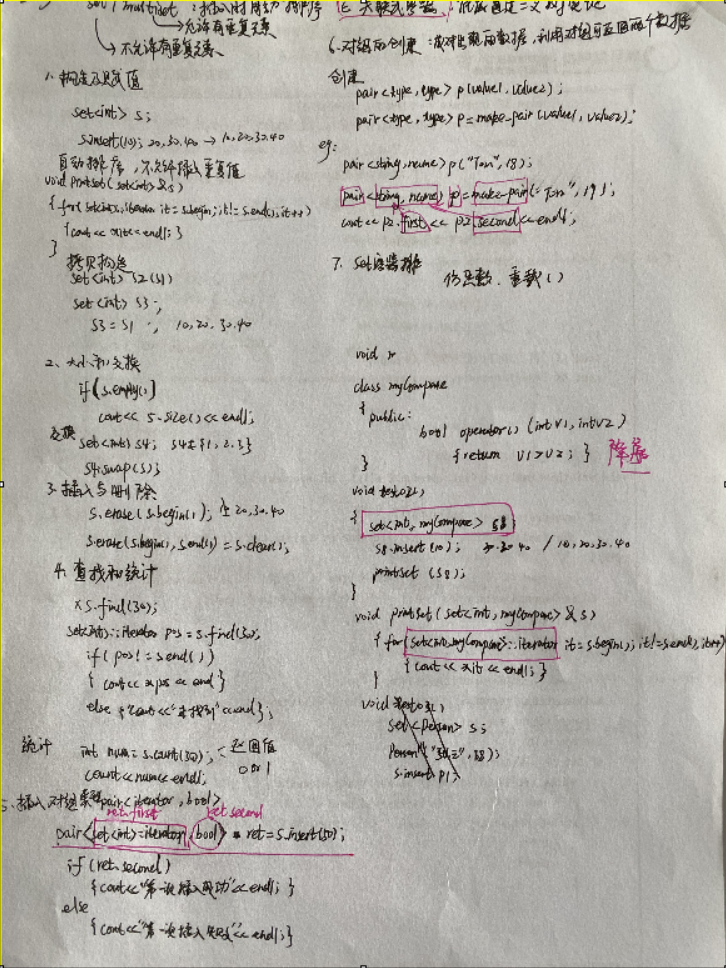 set / multiset : 插入时自动排序
→允许有重复元素
→不允许有重复元素
1. 构造及赋值
set<int> s;
s.insert(10); 20,30.40 → 10,20.30.40
自动排序,不允许插入重复值
void printset(set<int>&s)
{ for(set<int>::iterator it = s.begin; it != s.end(); it++)
{cout << *it << endl; }
}
拷贝构造
set<int> s2(s1)
set<int> s3;
s3 = s1 ; 10,20.30.40
2、大小和交换
if(s.empty())
cout << s.size() << endl;
交换 set<int> s4; s4 {1,2.3}
s4.swap(s);
3. 插入与删除
s.erase(s.begin()); 20,30.40
s.erase(s.begin(), s.end()) = s.clear();
4. 查找和统计
* s.find(30);
set<int>::iterator pos = s.find(30);
if (pos != s.end())
{ cout << *pos << end }
else {cout << "未找到" << end};
统计 int num = s.count(30); < 返回值
count << num << endl; 0 or 1
5. 插入对组 pair<iterator, bool>
ret.first ret second
pair<set<int>::iterator, bool> ret = s.insert(50);
if (ret.second)
{cout<<"第一次插入成功"<<endl; }
else
{cout<<"第一次插入失败"<<endl;}
6. 对组的创建:成对出现的数据,利用对组可返回两个数据
创建
pair<type, type> p(value1, value2);
pair<type, type> p = make_pair(value1, value2);
eg:
pair<string, nume> p("Tom", 18);
pair<string, nume> p = make-pair("Tom", 19);
cout << p2.first << p2.second << endl;
7. set容器排
仿函数. 重载()
void
class myCompare
{ public:
bool operator() (int v1, int v2)
{return v1>v2; } 降序
}
void test02()
{ set<int, myCompare> s8
s8.insert(10); 20.30 40 / 10,20.30.40
printset (s8);
}
void printset (set<int, myCompare> & s)
{ for(set<int,myCompare>::iterator it = s.begin(); it!=s.end(); it++)
{ cout << *it << endl; }
}
void test03()
set<Person> s;
Person ("张三", 18);
s.insert p1;